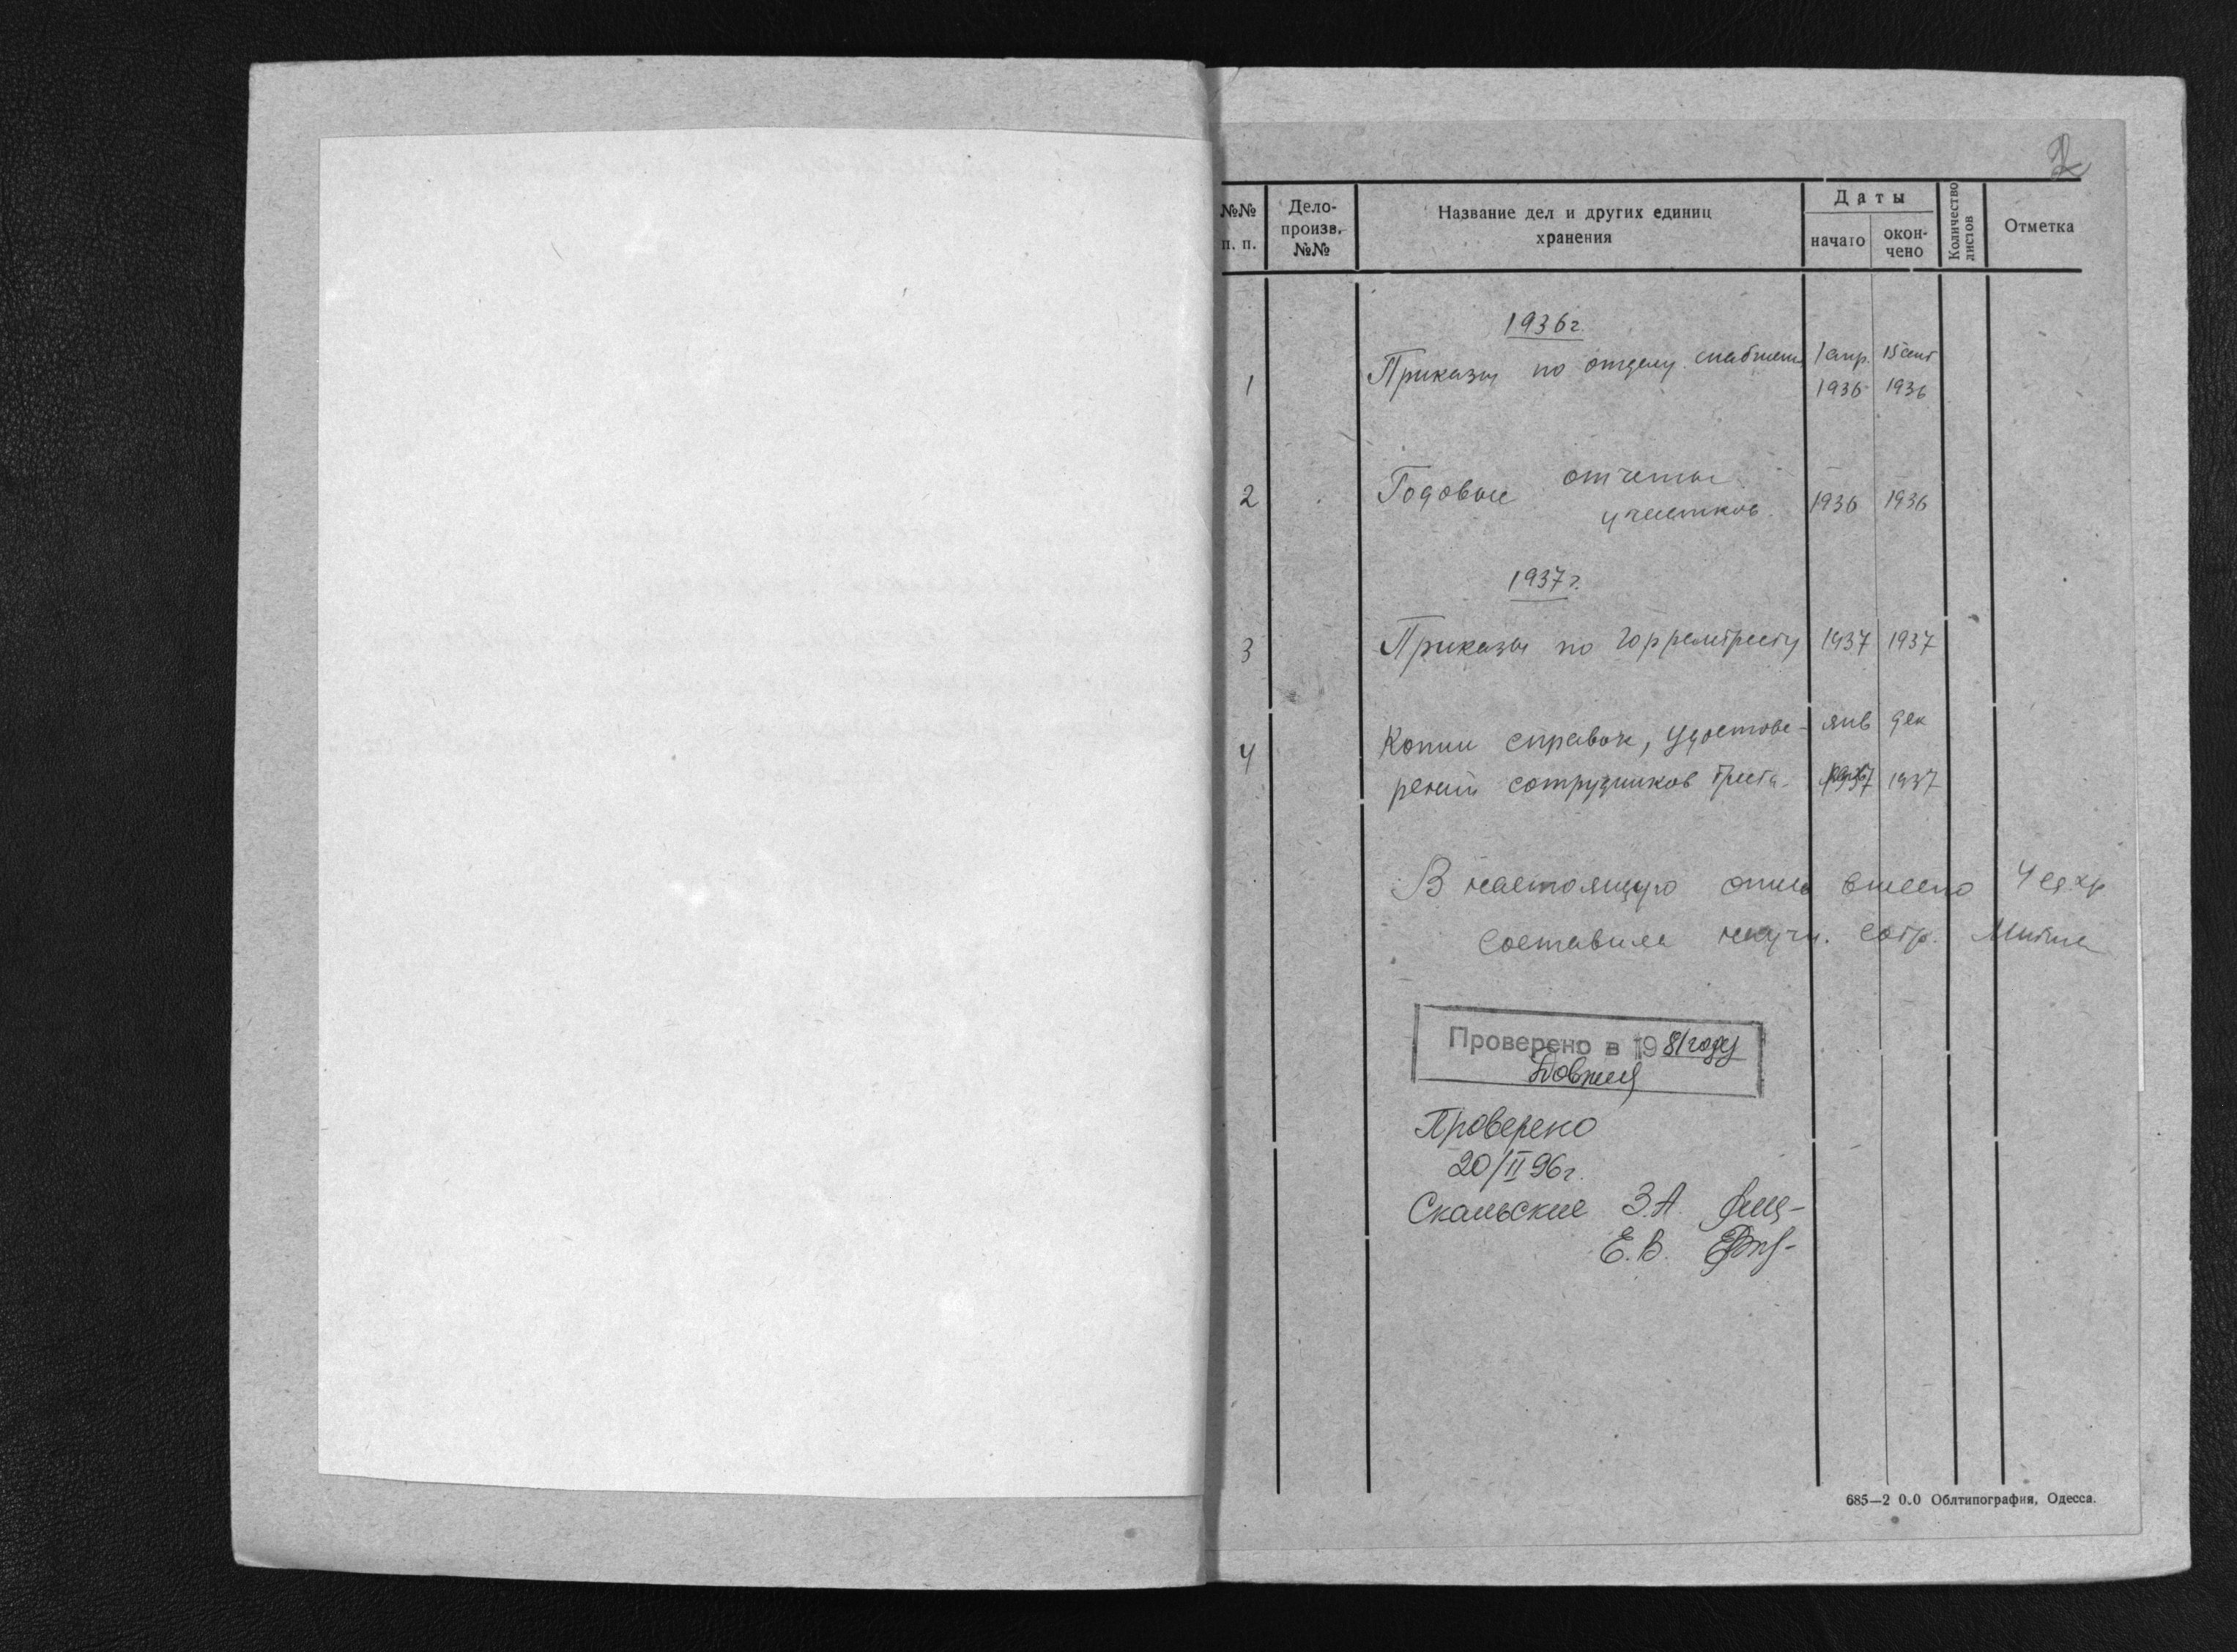 2
№№ п. п.
Дело-
произв.
№№
Название дел и других единиц
хранения
Даты
начато
окон-
чено
Количество
листов
Отметка
1936г.
1 Приказы по отделу снабжения 1 апр. 1936 15 сент 1936
2 Годовые отчеты
участков. 1936 1936
1937г.
3 Приказы по Горремтресту 1937 1937
4 Копии справок, удостове- янв дек
рений сотрудников треста. 1937 1937
В настоящую опись внесено 4 ед. хр
Составила научн. сотр.
Проверено в 1981 году
Проверено
20/II 96г.
Скальские З.А.
Е.В.
685—2 0.0 Облтипография, Одесса.